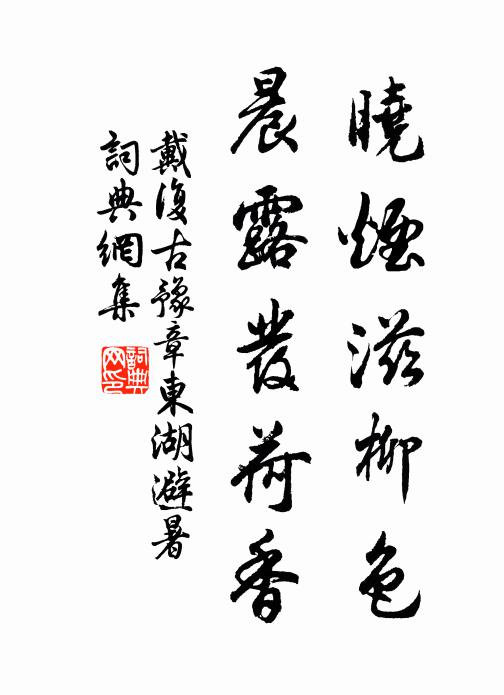 曉煙滋柳色
晨露發荷香
戴復古豫章東湖避暑
詞典網集
詞典
网印